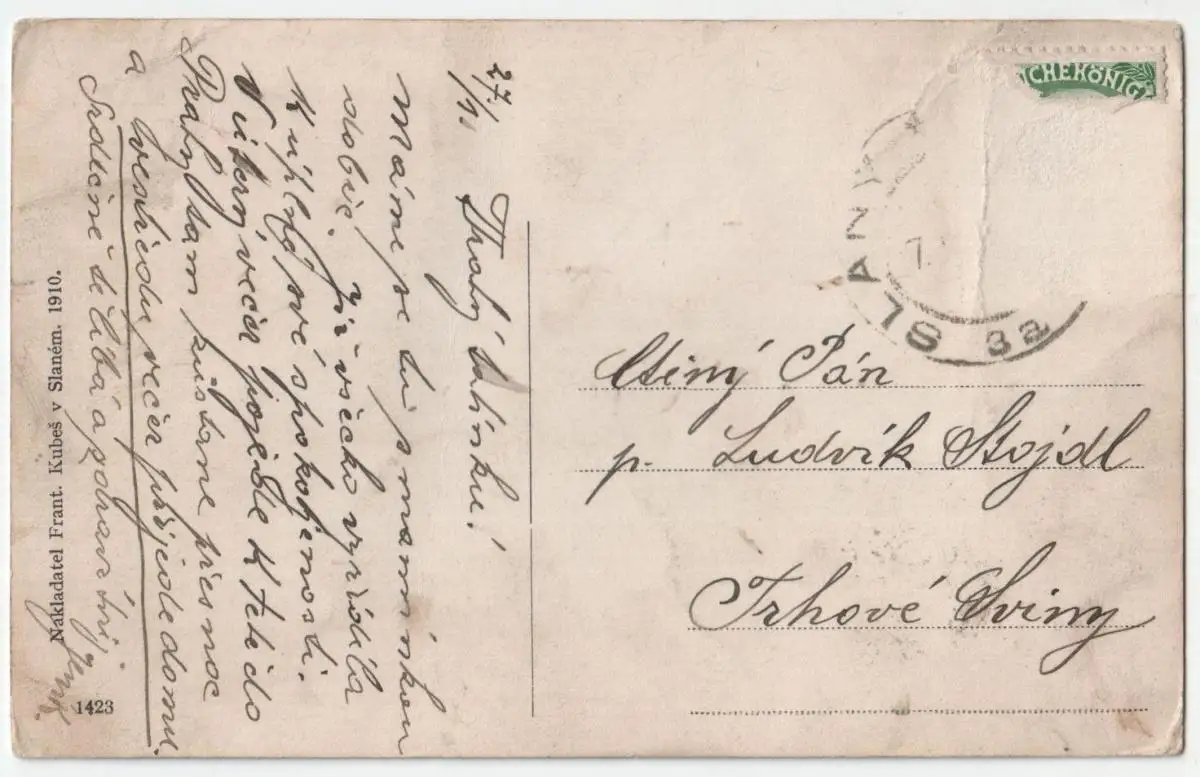 27./1.
Drahý tatínku!
Máme se tu s maminkou
dobře. Již všecko vyřídila
k úplné své spokojenosti.
V úterý večer pojede k tetě do
Prahy, tam zůstane přes noc
a ve středu večer přijede domů.
Srdečně tě líbá a zdraví tvůj
Nakladatel Frant. Kubeš v Slaném. 1910.
1423
CHEKÖNIG
SLANÝ
3a
Ctěný Pán
p. Ludvík Stojdl
Trhové Sviny